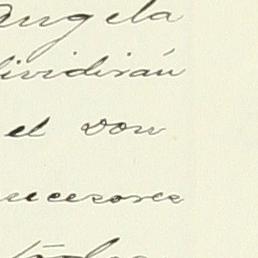 Angela
dividirán
el don
sucesores